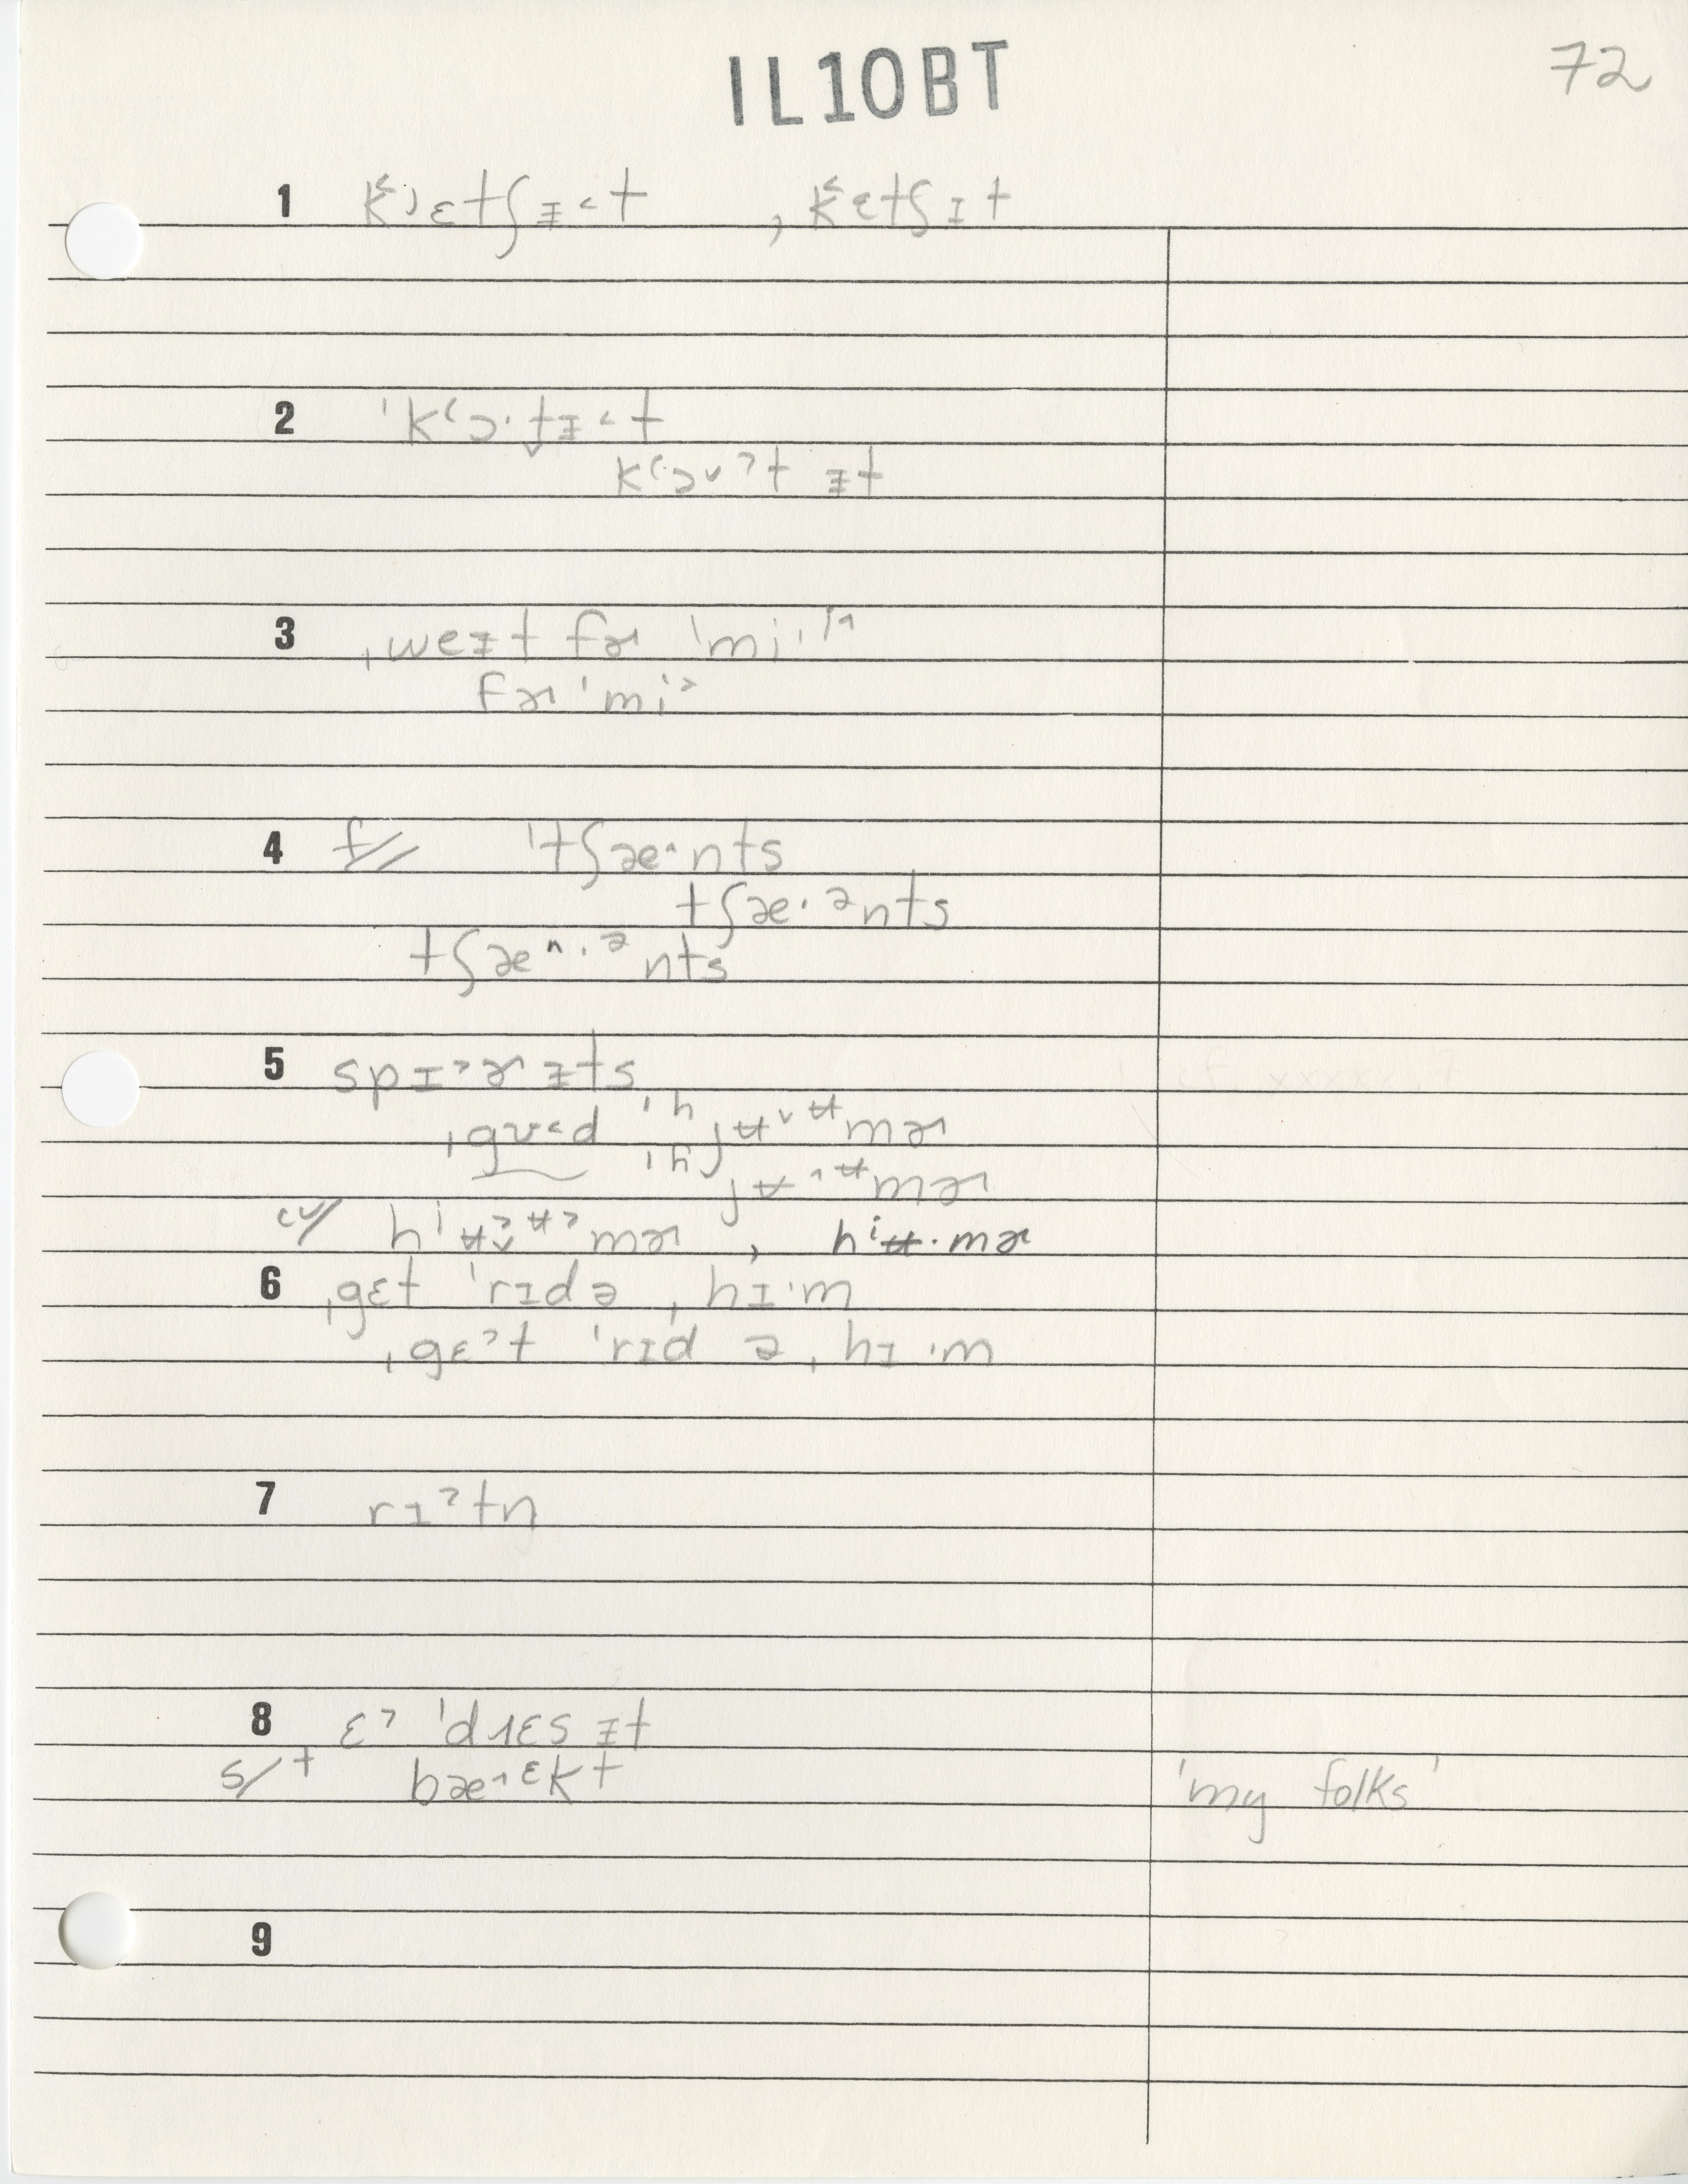 IL10BT
72
1 k˂ʾɛtʃɪ̵˃t , k˂ɛtʃɪt
2 ˈkʻɔ·t̬ɪ̵˃t
kʻɔ˅ˀt ɪ̵t
3 ˌweɪ̵t fɚ ˈmi·
fɚ ˈmi˃
4 f// ˈtʃæ^·nts
tʃæ·ᵊnts
tʃæ^·ᵊnts
5 spɪ˃ɚ ɪ̵ts
ˌgʊ˂d ˈhjʉ˅ᵾmɚ
cv// , hⁱʉ·mɚ
6 ˌgɛt ˈrɪdə ˌhɪ·m
ˌgɛˀt ˈrɪd ə ˌhɪ·m
7 rɪˀtn̩
8 ɛ˃ ˈdɹɛs ɪ̵t
s/t
'my folks'
9